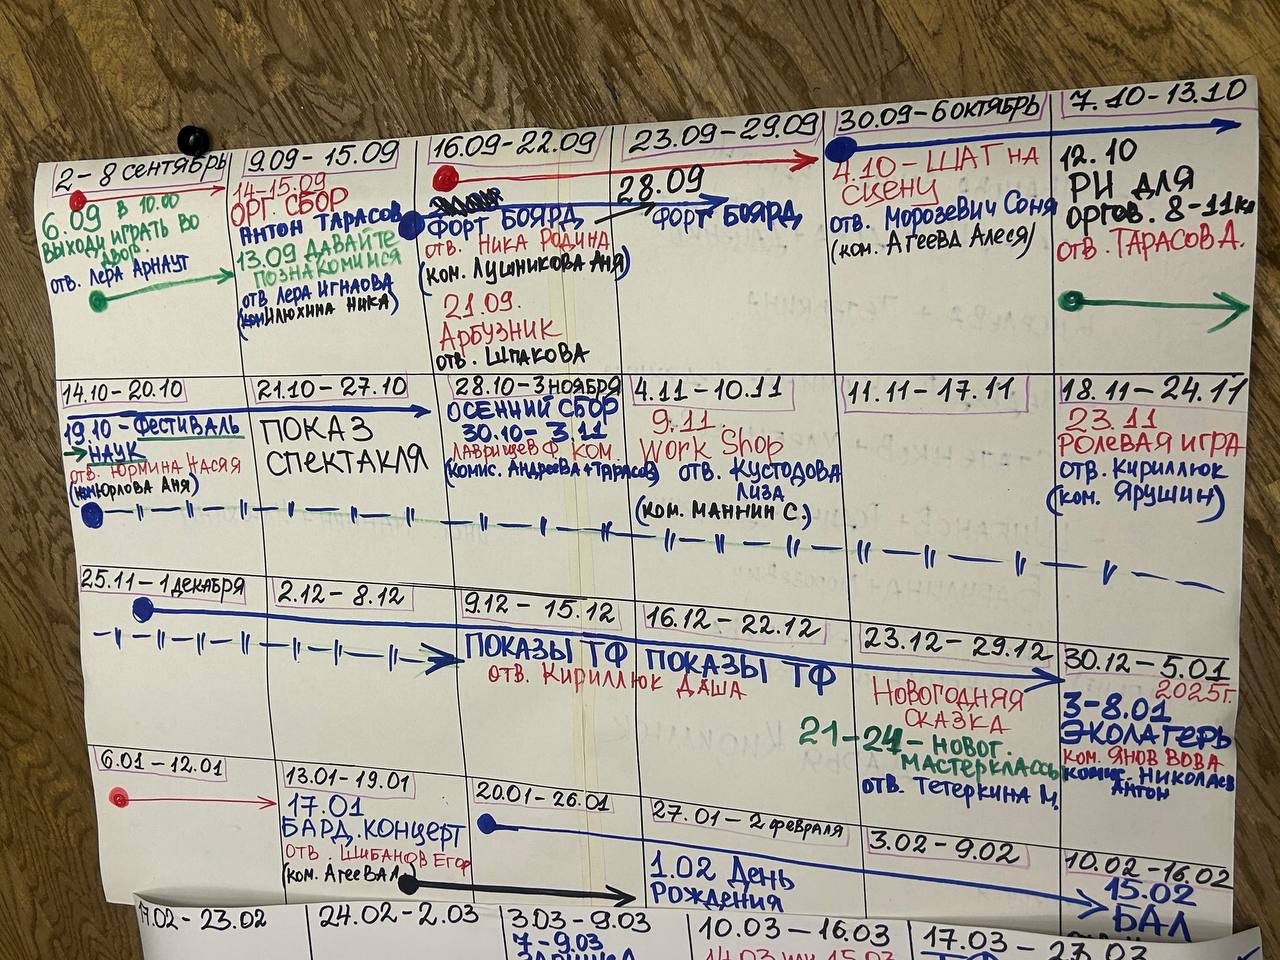 2 – 8 сентябрь
6.09 в 10.00
выходи играть во
двор.
отв. Лера Арнаут
9.09 – 15.09
14-15.09
ОРГ. СБОР
Антон Тарасов
13.09 ДАВАЙТЕ
ПОЗНАКОМИМСЯ
отв Лера Игнаова
Илюхина Ника)
16.09 – 22.09
ФОРТ БОЯРД
отв. Ника Родина
(ком. Лушникова Аня)
21.09.
Арбузник
отв. Шпакова
23.09 – 29.09
28.09
ФОРТ БОЯРД
30.09 – 6 октябрь
4.10 – ШАГ на
сцену
отв. Морозевич Соня
(ком. Агеева Алеся)
7.10 – 13.10
12.10
РИ для
оргов. 8-11кл
отв. Тарасов Д.
14.10 – 20.10
19.10 – Фестиваль
НАУК
отв. Юрмина Настя
Юрлова Аня)
21.10 – 27.10
ПОКАЗ
СПЕКТАКЛЯ
28.10 – 3 ноября
ОСЕННИЙ СБОР
30.10 – 3.11
Лаврищев Ф. ком.
(комис. Андреева + Тарасов)
4.11 – 10.11
9.11
Work Shop
отв. Кустодова
Лиза
(ком. Маннин С.)
11.11 – 17.11
18.11 – 24.11
23.11
РОЛЕВАЯ ИГРА
отв. Кириллюк
(ком. Ярушин)
25.11 – 1 декабря
2.12 – 8.12
9.12 – 15.12
ПОКАЗЫ ТФ
отв. Кириллюк Даша
16.12 – 22.12
ПОКАЗЫ ТФ
23.12 – 29.12
Новогодняя
сказка
21-24 – новог.
мастерклассы
отв. Тетеркина М.
30.12 – 5.01
2025г.
3-8.01
ЭКОЛАГЕРЬ
ком. Янов Вова
комис. Николаев
Антон
6.01 – 12.01
13.01 – 19.01
17.01
БАРД. КОНЦЕРТ
отв. Шибанов Егор
(ком. Агеева А.
20.01 – 26.01
27.01 – 2 февраля
1.02 День
Рождения
3.02 – 9.02
10.02 – 16.02
15.02
БАЛ
17.02 – 23.02
24.02 – 2.03
3.03 – 9.03
7 – 9.03
10.03 – 16.03
14.03 или 15.03
17.03 – 23.03